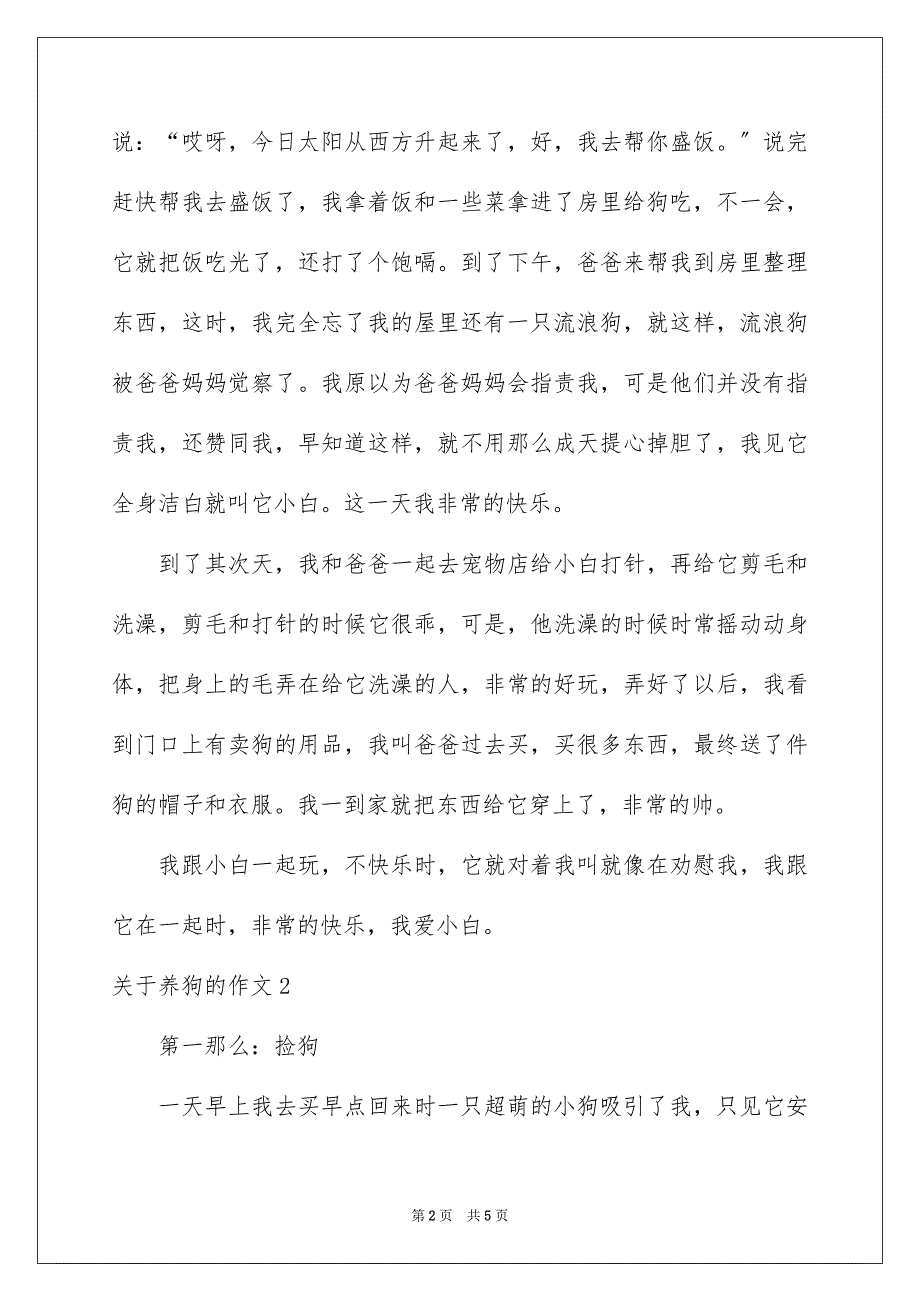 说：“哎呀，今日太阳从西方升起来了，好，我去帮你盛饭。〞说完
赶快帮我去盛饭了，我拿着饭和一些菜拿进了房里给狗吃，不一会，
它就把饭吃光了，还打了个饱嗝。到了下午，爸爸来帮我到房里整理
东西，这时，我完全忘了我的屋里还有一只流浪狗，就这样，流浪狗
被爸爸妈妈觉察了。我原以为爸爸妈妈会指责我，可是他们并没有指
责我，还赞同我，早知道这样，就不用那么成天提心掉胆了，我见它
全身洁白就叫它小白。这一天我非常的快乐。
到了其次天，我和爸爸一起去宠物店给小白打针，再给它剪毛和
洗澡，剪毛和打针的时候它很乖，可是，他洗澡的时候时常摇动动身
体，把身上的毛弄在给它洗澡的人，非常的好玩，弄好了以后，我看
到门口上有卖狗的用品，我叫爸爸过去买，买很多东西，最终送了件
狗的帽子和衣服。我一到家就把东西给它穿上了，非常的帅。
我跟小白一起玩，不快乐时，它就对着我叫就像在劝慰我，我跟
它在一起时，非常的快乐，我爱小白。
关于养狗的作文２
第一那么：捡狗
一天早上我去买早点回来时一只超萌的小狗吸引了我，只见它安
第 2 页 共 5 页